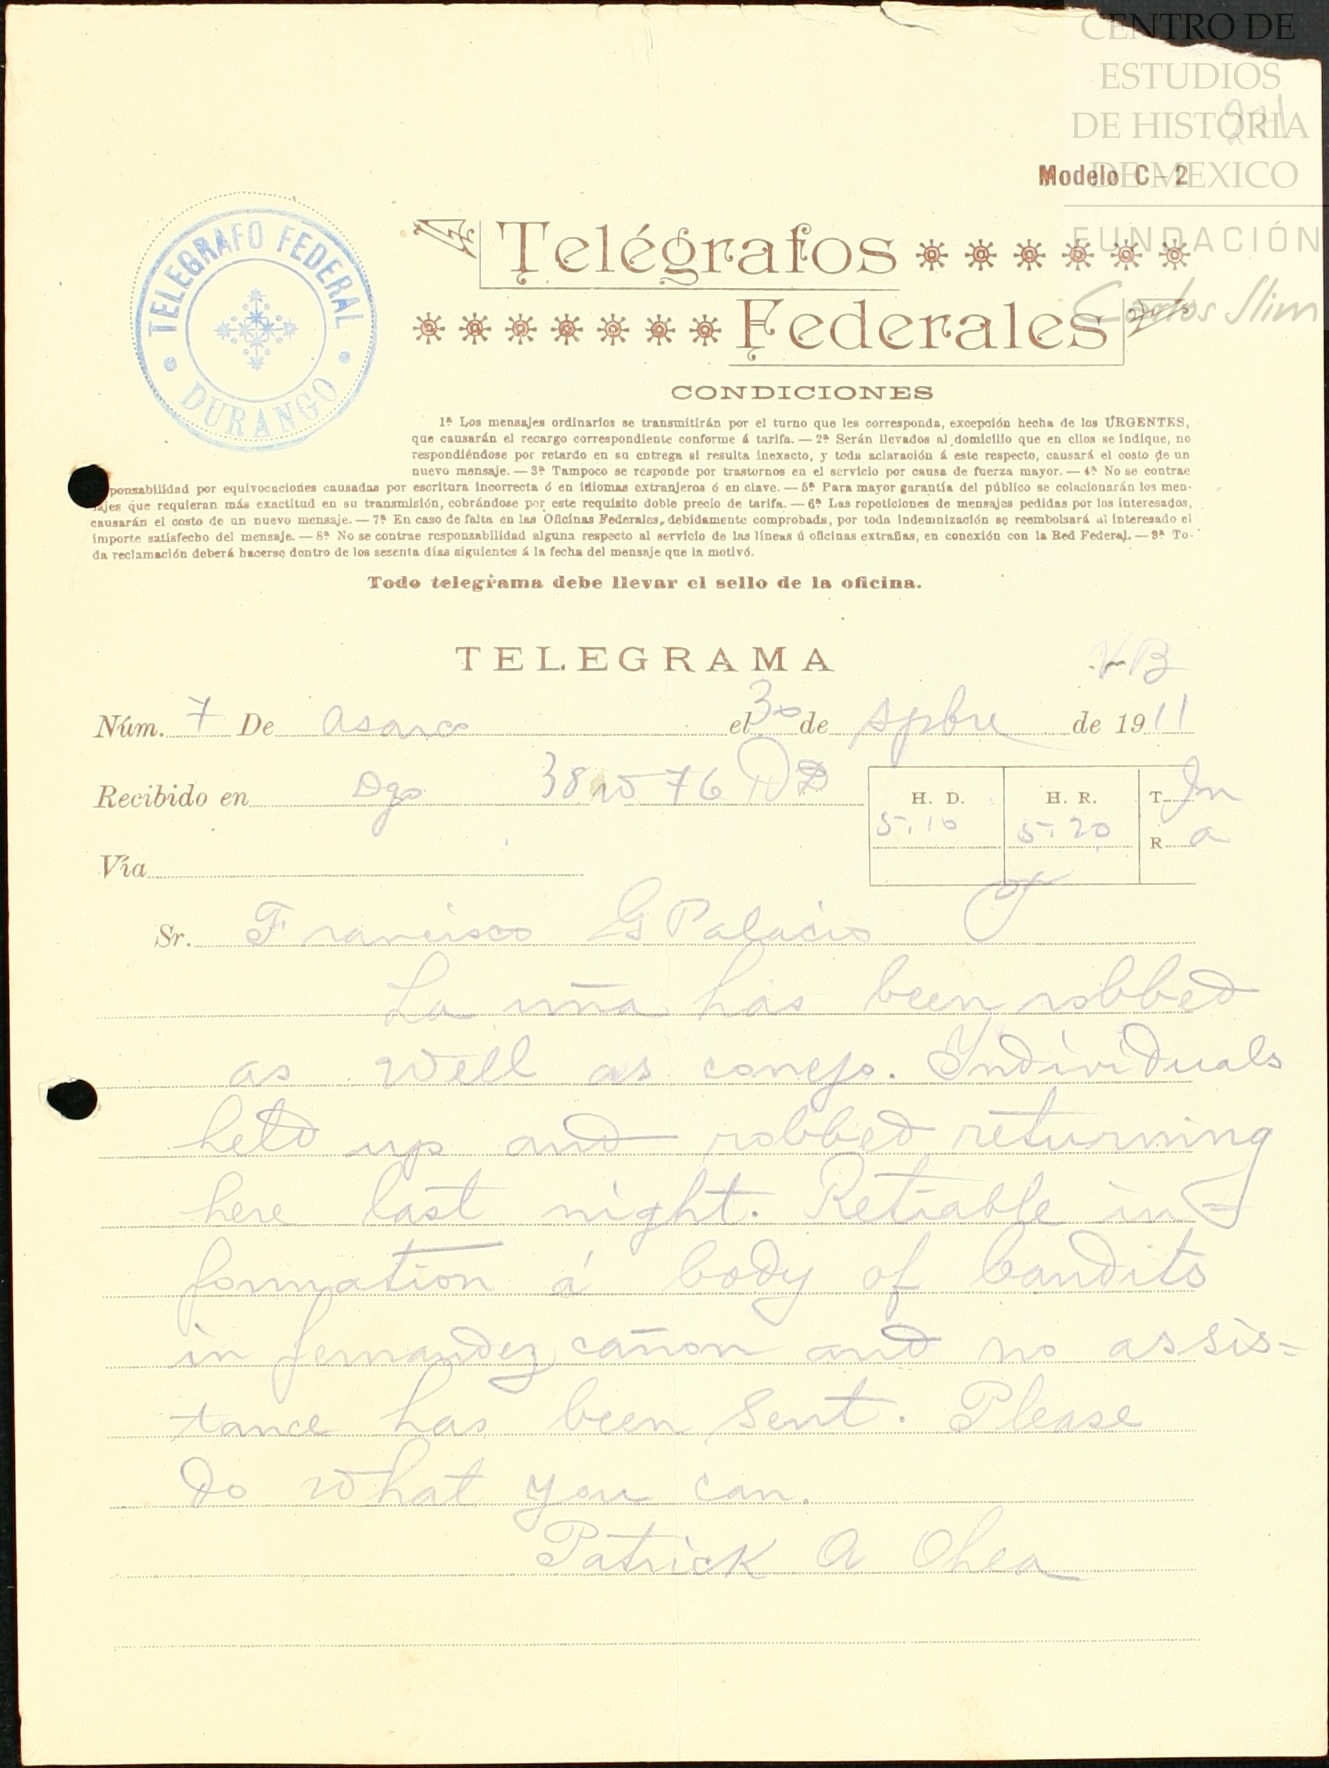 CENTRO DE
ESTUDIOS
DE HISTORIA
DE MEXICO
FUNDACIÓN
Carlos Slim
Modelo C-2
TELEGRAFO FEDERAL
DURANGO
Telégrafos
Federales
CONDICIONES
1ª Los mensajes ordinarios se transmitirán por el turno que les corresponda, excepción hecha de los URGENTES,
que causarán el recargo correspondiente conforme á tarifa. — 2ª Serán llevados al domicilio que en ellos se indique, no
respondiéndose por retardo en su entrega si resulta inexacto, y toda aclaración á este respecto, causará el costo de un
nuevo mensaje. — 3ª Tampoco se responde por trastornos en el servicio por causa de fuerza mayor. — 4ª No se contrae
ponsabilidad por equivocaciones causadas por escritura incorrecta ó en idiomas extranjeros ó en clave. — 5ª Para mayor garantía del público se colacionarán los men-
sajes que requieran más exactitud en su transmisión, cobrándose por este requisito doble precio de tarifa. — 6ª Las repeticiones de mensajes pedidas por los interesados,
causarán el costo de un nuevo mensaje. — 7ª En caso de falta en las Oficinas Federales, debidamente comprobada, por toda indemnización se reembolsará al interesado el
importe satisfecho del mensaje. — 8ª No se contrae responsabilidad alguna respecto al servicio de las líneas ú oficinas extrañas, en conexión con la Red Federal. — 9ª To-
da reclamación deberá hacerse dentro de los sesenta días siguientes á la fecha del mensaje que la motivó.
Todo telegrama debe llevar el sello de la oficina.
TELEGRAMA
VB
Núm. 7 De asarco el 30 de spbre de 1911
Recibido en Dgo 38 w 76 DD
H. D. H. R. T
5.10 5.20 R a
Vía
Sr. Francisco G Palacio
La uña has been robbed
as well as conejo. Individuals
held up and robbed returning
here last night. Retiable in-
formation á body of bandits
in fernandez cañon and no assis=
tance has been sent. Please
do what you can.
Patrick A Ohea